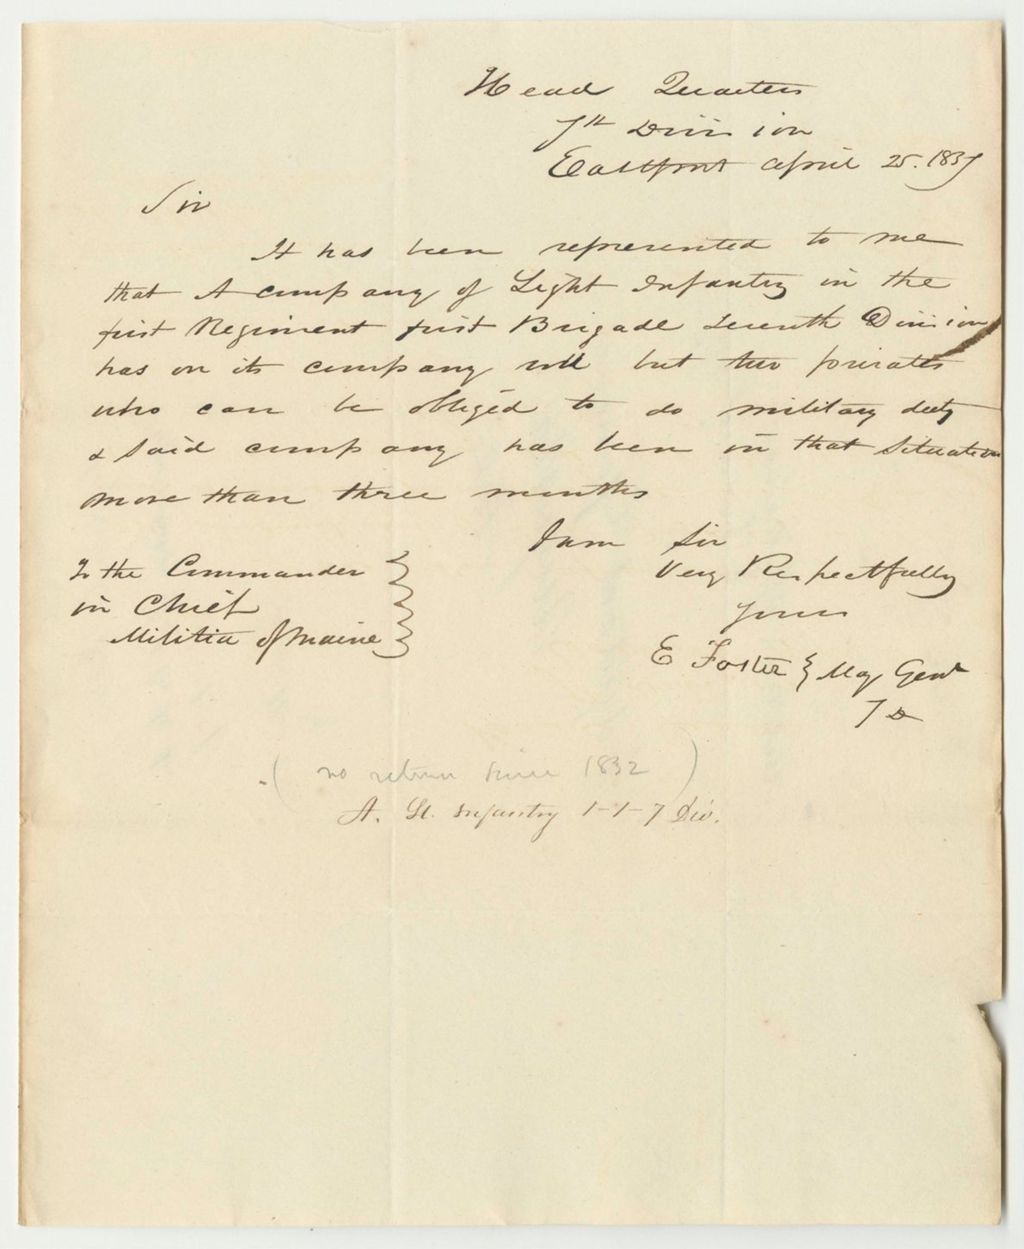 Head Quarters
7th Division
Eastport April 25. 1837
Sir
It has been represented to me
that A company of Light Infantry in the
first Regiment first Brigade Seventh Division
has on its company roll but two privates
who can be obliged to do military duty
& Said company has been in that Situation
more than three months
I am Sir
Very Respectfully
Yours
E Foster } Maj Genl
7 D
To the Commander
in Chief
Militia of Maine
(no return since 1832)
A. Lt. Infantry 1-1-7 Div.